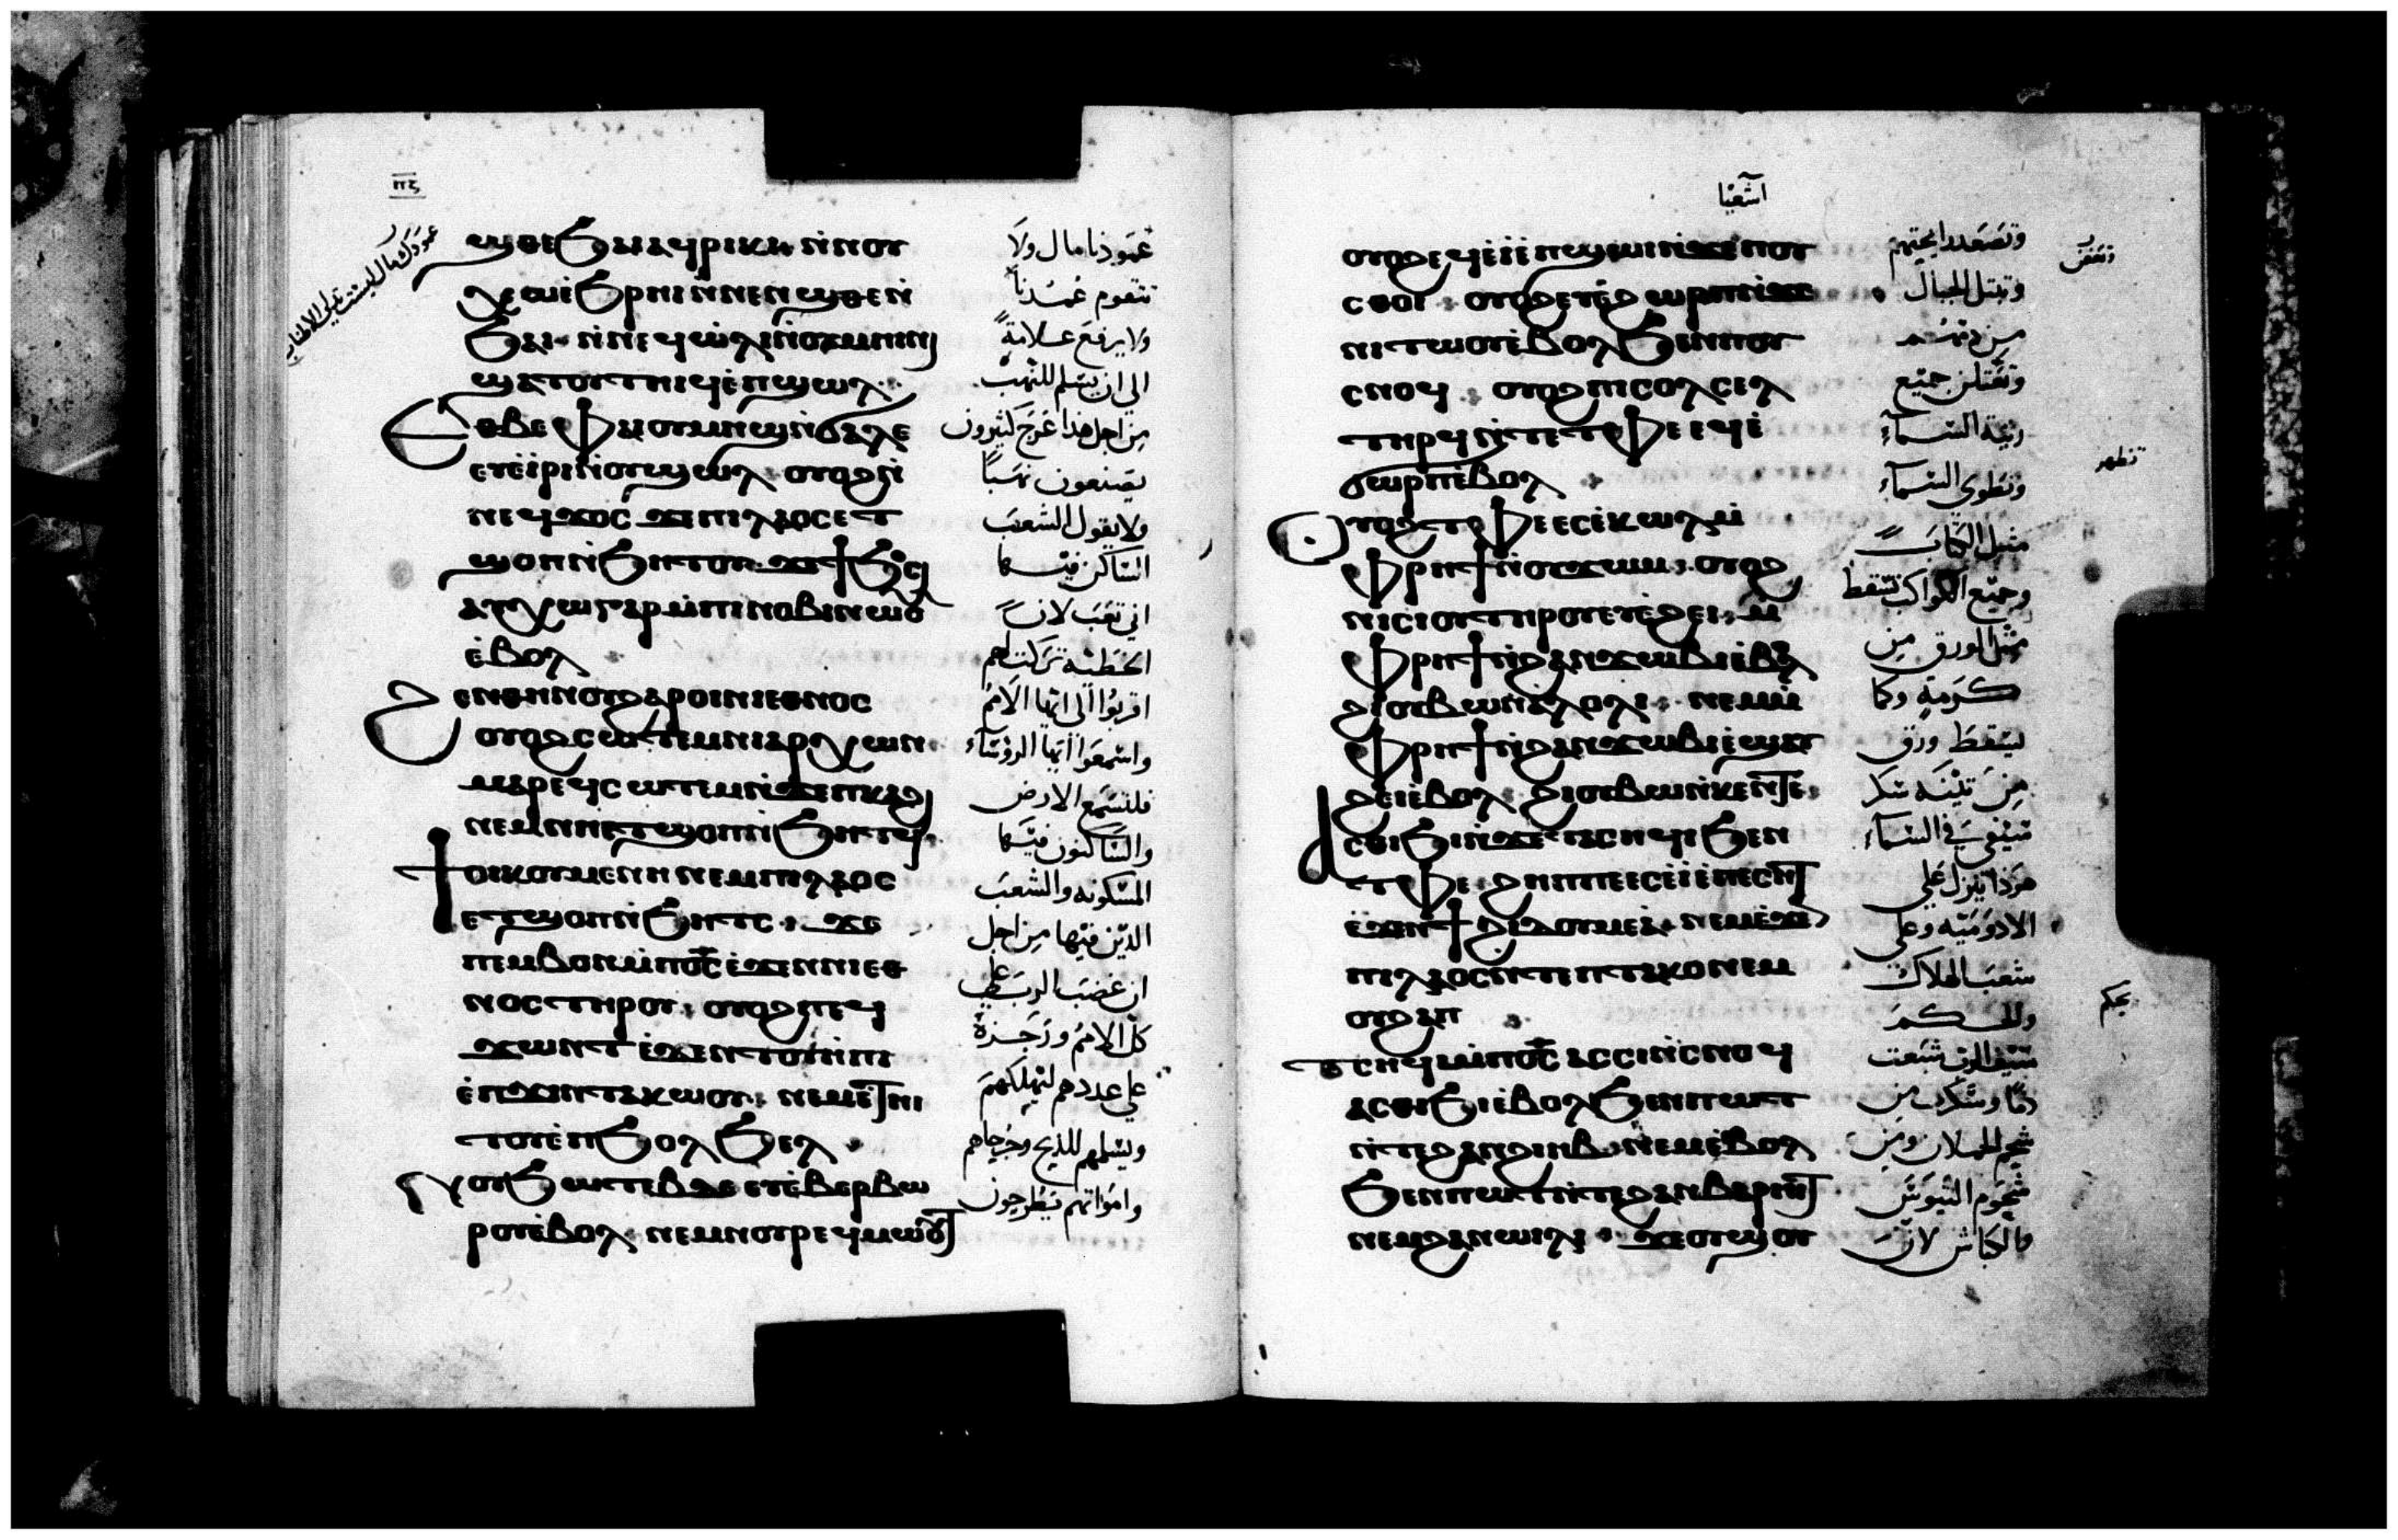 ⲡⲋ
ϣⲑⲉϧⲁⲓ ⲁϥⲣⲓⲕⲓ ⲛ̀ⲛⲟⲩ
ϫⲉⲙⲉϧⲣⲏⲓ ⲛ̀ⲛⲉⲛϣⲑⲉⲛ
ⲉϣⲁⲧⲟⲩⲧⲏⲓϥ ⲉ̀ⲡϣⲱⲗ
ⲉⲑⲃⲉⲫⲁⲓ ⲟⲩⲙⲏϣ ⲛ̀ϭⲁⲗⲉ
ⲉⲩⲉ̀ⲓⲣⲓ ⲛ̀ⲟⲩϣⲱⲗ ⲟⲩⲟϩ ⲛ̀
ⲛⲉϥϫⲟⲥ ϫⲉ ⲡⲓⲗⲁⲟⲥ ⲉⲧ
ϣⲟⲡ ⲛ̀ϧⲏⲧⲟⲩ ϫⲉ ϯϧⲟⲥⲓ
ⲁⲩⲭⲱ ⲅⲁⲣ ⲙ̀ⲡⲓⲛⲟⲃⲓ ⲛⲱⲟⲩ
ⲉ̀ⲃⲟⲗ
ϧⲉⲛⲑⲏⲛⲟⲩ ϩⲁⲣⲟⲓ ⲛⲓⲉⲑⲛⲟⲥ
ⲟⲩⲟϩ ⲥⲱⲧⲉⲙ ⲛⲓⲁⲣⲭⲱⲛ
ⲙⲁⲣⲉϥⲥⲱⲧⲉⲙ ⲛ̀ϫⲉ ⲡⲕⲁϩⲓ
ⲛⲉⲙ ⲛⲏⲉⲧϣⲟⲡ ⲛ̀ϧⲏⲧϥ
ϯⲟⲓⲕⲟⲩⲙⲉⲛⲏ ⲛⲉⲙ ⲡⲓⲗⲁⲟⲥ
ⲉⲧϣⲟⲡ ⲛ̀ϧⲏⲧⲥ ϫⲉ
ⲡⲉⲙⲃⲟⲛ ⲙ̀ⲡⲟ̅ⲥ̅ ⲉ̀ϫⲉⲛ ⲛⲓⲉⲑ
ⲛⲟⲥ ⲧⲏⲣⲟⲩ ⲟⲩⲟϩ ⲡⲉϥ
ϫⲱⲛⲧ ⲉ̀ϫⲉⲛ ⲧⲟⲩⲏⲡⲓ
ⲉ̀ⲡϫⲓⲛⲧⲁⲕⲱⲟⲩ ⲛⲉⲙ ⲉ̀ⲧⲏⲓ
ⲧⲟⲩ ⲉ̀ⲡϧⲟⲗϧⲉⲗ
ⲛⲟⲩϧⲱⲧⲉⲃ ⲇⲉ ⲉⲩⲉ̀ⲃⲉⲣⲃⲱ
ⲣⲟⲩ ⲉ̀ⲃⲟⲗ ⲛⲉⲙ ⲛⲟⲩⲣⲉϥⲙⲱⲟⲩⲧ
عمودنا مال ولا
تقوم عمدنا
ولا يرفع علامة
الى ان يسلم للنهب
من اجل هذا عرج كثيرون
يصنعون نهبا
ولا يقول الشعب
الساكن فيها
انى تعب لان
الخطية تركت لهم
اقربوا الى ايها الامم
واسمعوا ايها الرؤساء
فلتسمع الارض
والساكنون فيها
المسكونه والشعب
الذين فيها من اجل
ان غضب الرب على
كل الامم ورجزه
على عددهم ليهلكهم
ويسلمهم للذبح وجرحاهم
وامواتهم يطرحون
اشعيا
ⲟⲩⲟϩ ⲉϥⲉ̀ⲓ̀ ⲉ̀ⲡϣⲱⲓ ⲛ̀ϫⲉ ⲡⲟⲩ
ⲥⲑⲟⲓ ⲟⲩⲟϩ ⲉⲩⲉ̀ϩⲱⲣⲡ ⲛ̀ϫⲉ
ⲛⲓⲧⲱⲟⲩ ⲉ̀ⲃⲟⲗ ϧⲉⲛ ⲡⲟⲩ
ⲥⲛⲟϥ ⲟⲩⲟϩ ⲡⲓⲥⲟⲗⲥⲉⲗ
ⲧⲏⲣϥ ⲛ̀ⲧⲉ ⲧⲫⲉ ⲉϥⲉ̀
ϭⲱⲣⲡ ⲉ̀ⲃⲟⲗ
ⲟⲩⲟϩ ⲧⲫⲉ ⲉⲥⲉ̀ⲕⲱⲗ ⲙ̀
ⲫⲣⲏϯ ⲛ̀ⲟⲩϫⲱⲙ ⲟⲩⲟϩ
ⲛⲓⲥⲓⲟⲩ ⲧⲏⲣⲟⲩ ⲉⲩⲉ̀ϩⲉⲓ ⲙ̀
ⲫⲣⲏϯ ⲛ̀ϩⲁⲛϫⲱⲃⲓ ⲉ̀ⲃⲟⲗ
ϩⲓ ⲟⲩⲃⲱ ⲛ̀ⲁⲗⲟⲗⲓ ⲛⲉⲙ ⲙ̀
ⲫⲣⲏϯ ⲛ̀ϩⲁⲛϫⲱⲃⲓ ⲉ̀ϣⲁⲩ
ϩⲉⲓ ⲉ̀ⲃⲟⲗ ϩⲓ ⲟⲩⲃⲱ ⲛ̀ⲕⲉⲛⲧⲉ
ⲁⲥⲑⲓϧⲓ ⲛ̀ϫⲉ ⲧⲁⲥⲏϥⲓ ϧⲉⲛ
ⲧⲫⲉ ϩⲏⲡⲡⲉ ⲉⲥⲉ̀ⲓ̀ ⲉ̀ⲡⲉⲥⲏⲧ
ⲉ̀ϫⲉⲛ ϯϩⲓⲇⲟⲩⲙⲉⲁ ⲛⲉⲙ ⲉ̀ϫⲉⲛ
ⲡⲓⲗⲁⲟⲥ ⲛ̀ⲧⲉ ⲡⲧⲁⲕⲟ ⲛⲉⲙ
ⲟⲩϩⲁⲡ
ⲧⲥⲏϥⲓ ⲙ̀ⲡⲟ̅ⲥ̅ ⲁⲥⲥⲓ ⲛ̀ⲥⲛⲟϥ
ⲁⲥⲑⲓϧⲓ ⲉ̀ⲃⲟⲗ ϧⲉⲛ ⲡⲱⲧ
ⲛ̀ⲧⲉ ϩⲁⲛϩⲓⲏⲃ ⲛⲉⲙ ⲉ̀ⲃⲟⲗ
ϧⲉⲛ ⲡⲱⲧ ⲛ̀ⲧⲉ ϩⲁⲛⲃⲁⲣⲏⲓⲧ
ⲛⲉⲙ ϩⲁⲛⲱⲓⲗⲓ ϫⲉ ⲟⲩϣⲟⲩ
وتبتل الجبال
من دمهم
جميع
زينة السماء
وتطوى السماء
مثل الكتاب
وجميع الكواكب تسقط
مثل الورق من
كرمة وكما
يسقط ورق
من تينه سكر
سيفى فى السماء
هوذا ينزل على
الادوميه وعلى
شعب الهلاك
والحكم
سيف الرب شبعت
دما وسكرت من
شحم الحملان ومن
شحوم التيوس
والكباش لان
تظهر
بحكم